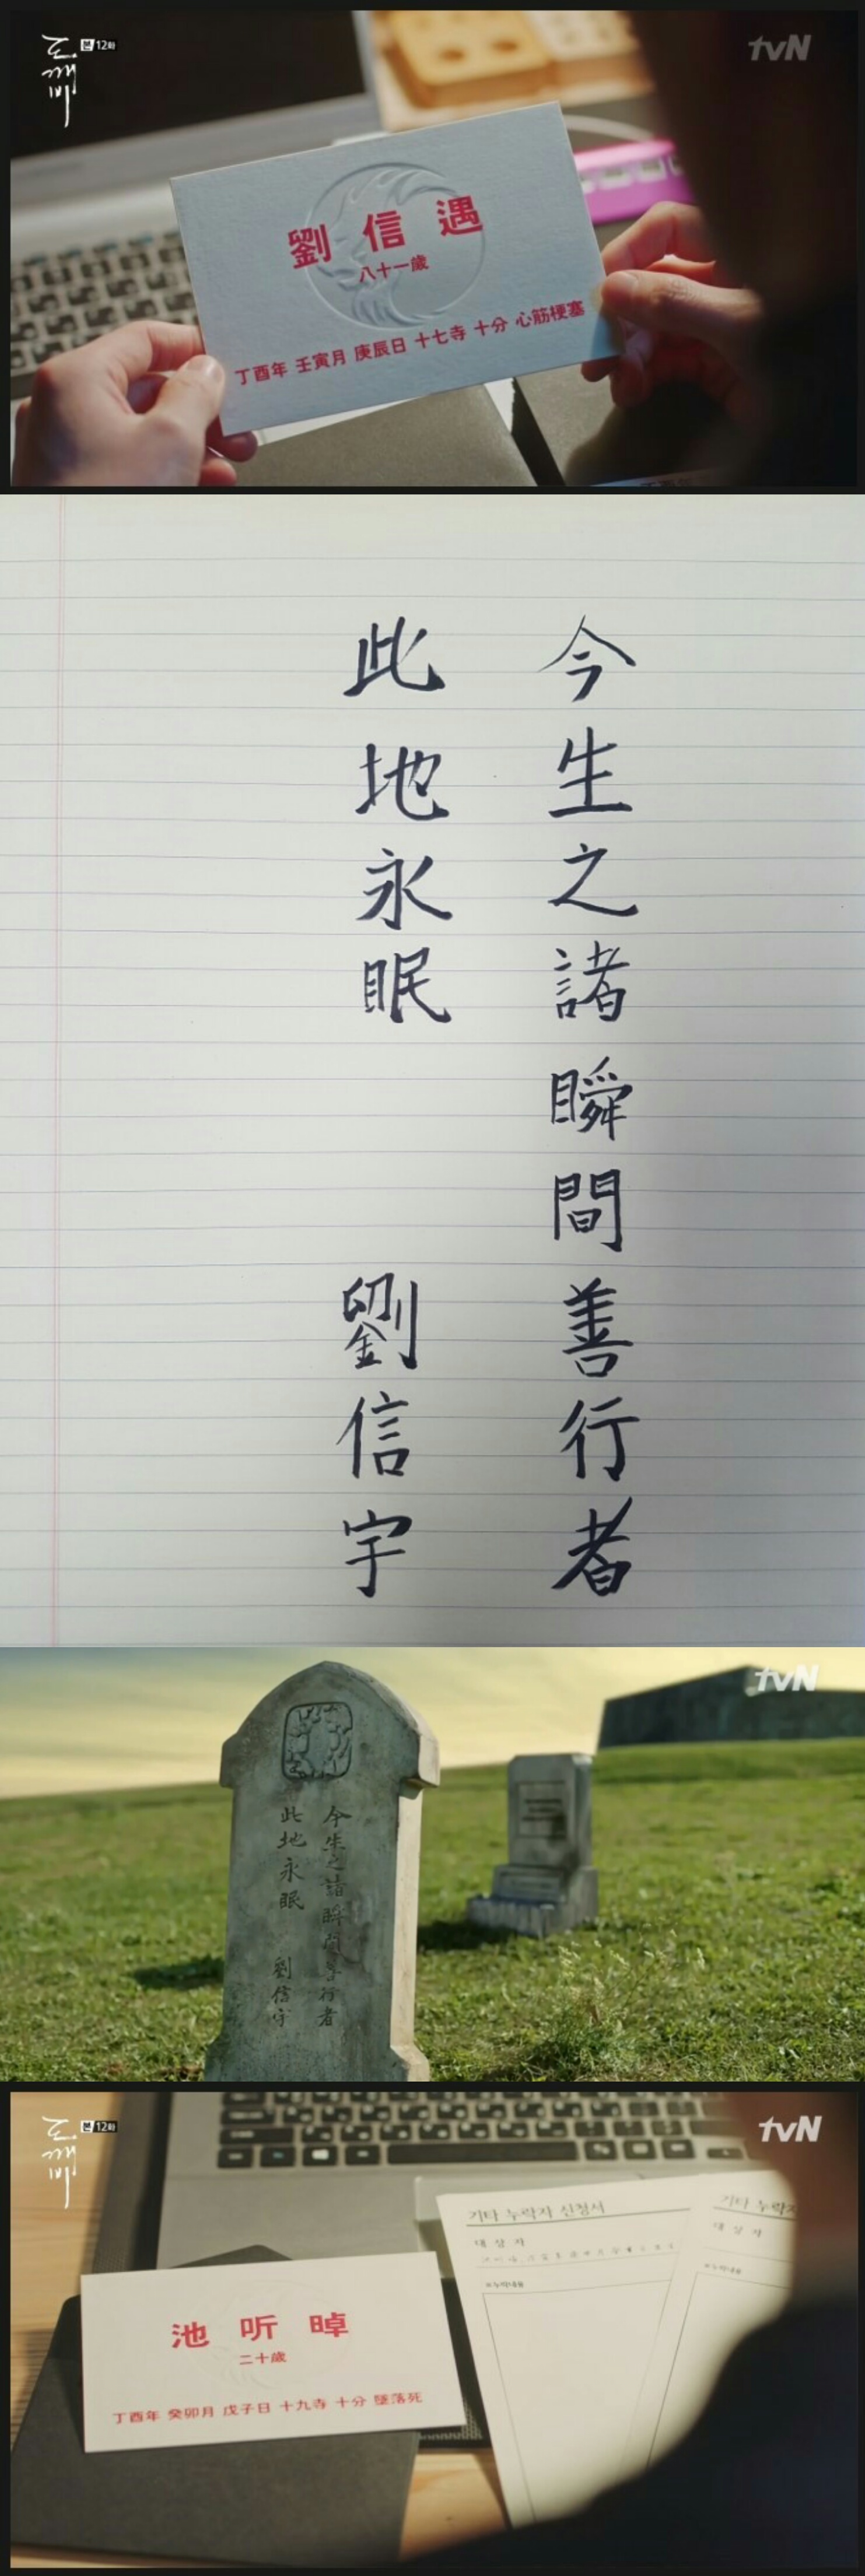 도깨비
본 12화
tvN
劉信遇
八十一歲
丁酉年 壬寅月 庚辰日 十七寺 十分 心筋梗塞
今生之諸瞬間善行者
此地永眠 劉信宇
tvN
今生之諸瞬間善行者
此地永眠 劉信宇
도깨비
본 12화
tvN
기타 누락자 신청서
대상자
기타 누락자
대상자
池听晫
二十歲
丁酉年 癸卯月 戊子日 十九寺 十分 墜落死